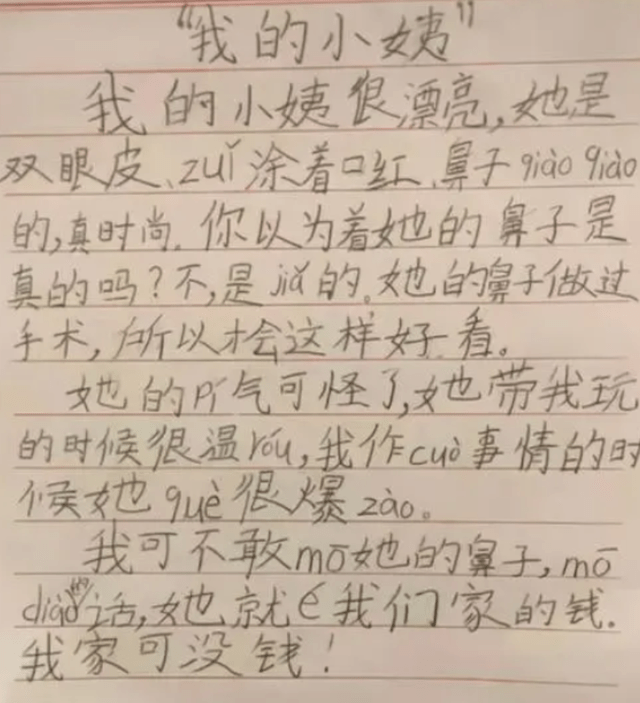 "我的小姨"
我的小姨很漂亮,她是
双眼皮、zuǐ涂着口红、鼻子qiào qiào
的,真时尚.你以为着她的鼻子是
真的吗?不,是jiǎ的。她的鼻子做过
手术,所以才会这样好看。
她的pí气可怪了,她带我玩
的时候很温róu,我作cuò事情的时
候她què很爆zào。
我可不敢mō她的鼻子,mō
diào的话,她就é我们家的钱.
我家可没钱!